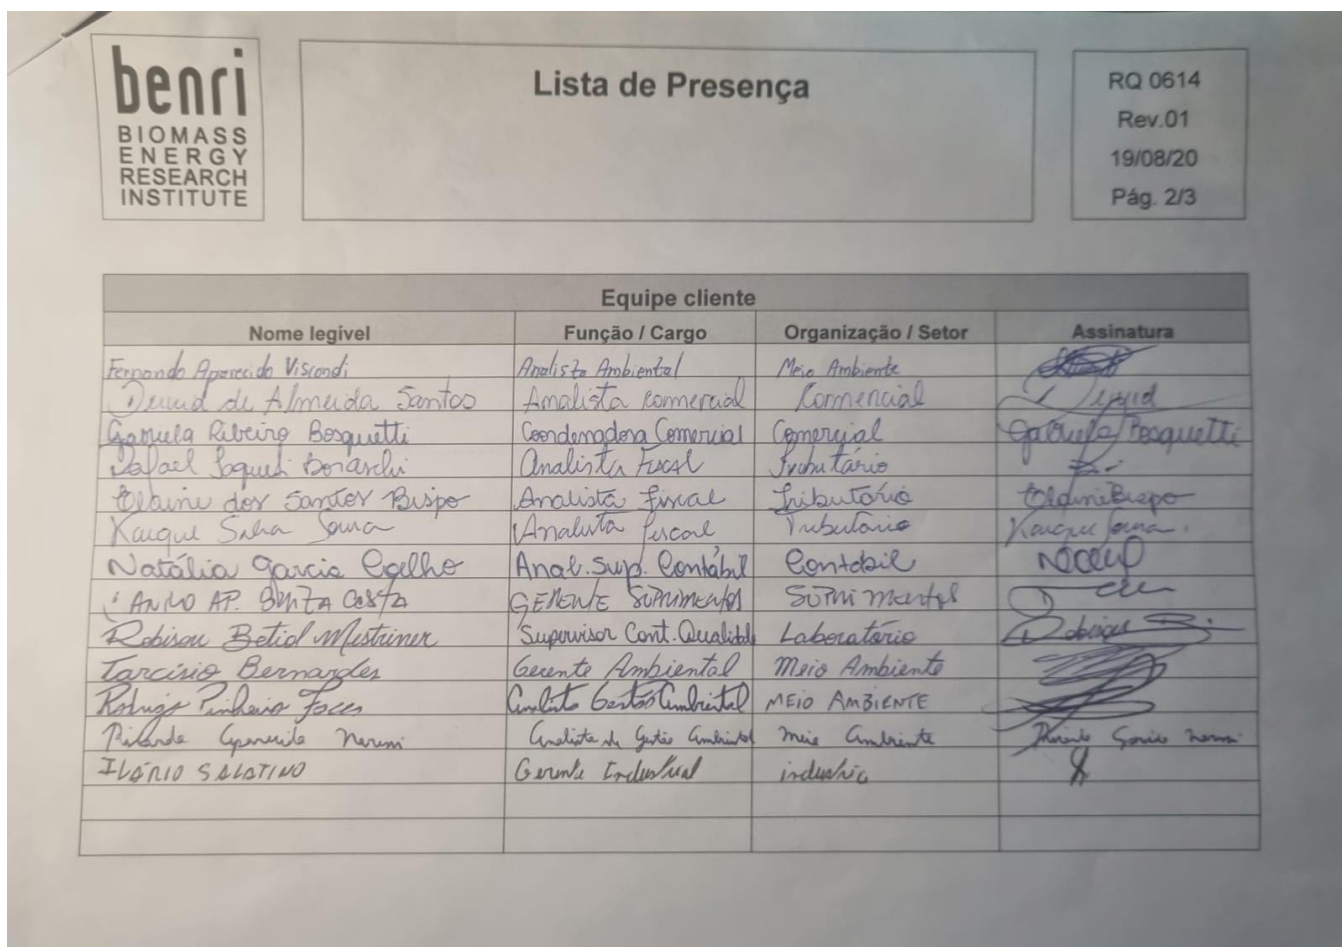 benri
BIOMASS
ENERGY
RESEARCH
INSTITUTE
Lista de Presença
RQ 0614
Rev.01
19/08/20
Pág. 2/3
Equipe cliente
Nome legível Função / Cargo Organização / Setor Assinatura
Fernando Aparecido Viscondi Analista Ambiental Meio Ambiente
de Almeida Santos Analista comercial Comercial
Gabriela Ribeiro Bosquetti Coordenadora Comercial Comercial Gabriela Bosquetti
Rafael Analista Fiscal Tributário
Elaine dos Santos Bispo Analista fiscal Tributário Elaine Bispo
Kauque Souza Analista fiscal Tributário Kauque Souza
Natália Garcia Coelho Anal. Sup. Contábil Contábil
AP. COSTA GERENTE SUPRIMENTOS SUPRIMENTOS
Robison Betiol Mestriner Supervisor Cont. Qualidade Laboratório Robison
Tarcísio Bernardes Gerente Ambiental Meio Ambiente
Rodrigo Pinheiro Analista Gestão Ambiental MEIO AMBIENTE
Aparecido Analista de Gestão Ambiental meio ambiente
ILÁRIO SALATINO Gerente Industrial industria